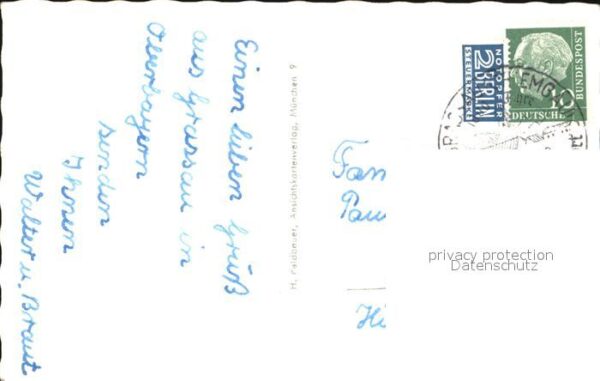 Einen lieben Gruß
aus Grassau in
Oberbayern
senden
Ihnen
Walter u. Braut
H. Paidbauer, Ansichtskartenverlag, München 9
NOTOPFER
2 BERLIN
STEUERMARKE
DEUTSCHE
BUNDESPOST
10
Fam
Pau
Hi
privacy protection
Datenschutz